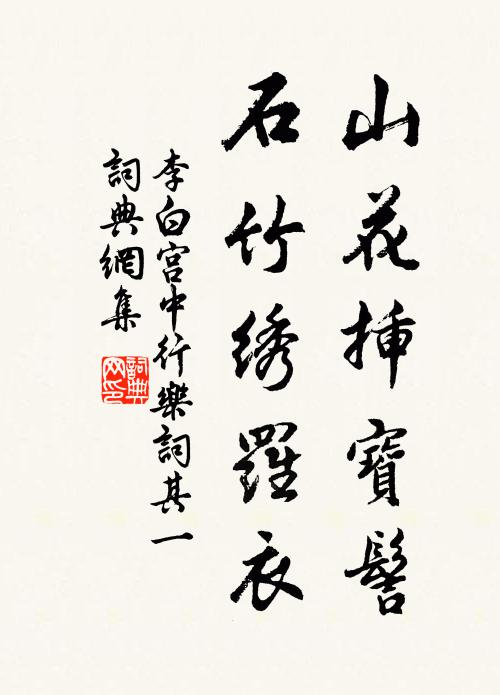 山花插寶髻
石竹绣羅衣
李白宫中行樂詞其一
詞典網集
詞典網印